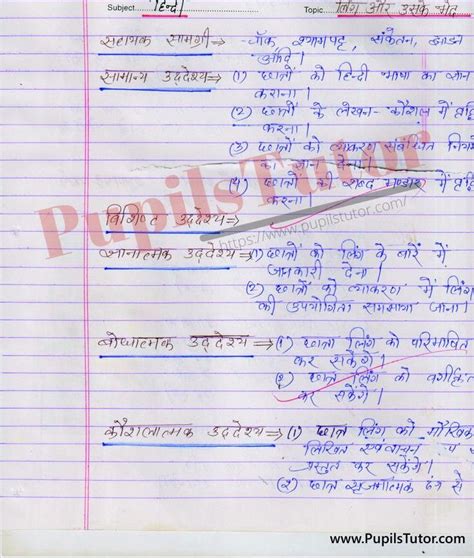 Subject हिन्दी Topic लिंग और उसके भेद
सहायक सामग्री ⇒ चॉक श्यामपट्ट, संकेतक, झाडन
आदि।
सामान्य उद्देश्य ⇒ (1) छात्रों को हिन्दी भाषा का ज्ञान
कराना।
(2) छात्रों के लेखन-कौशल में वृद्धि
करना।
(3) छात्रों को व्याकरण संबंधित नियमों
का ज्ञान देना।
(4) छात्रों की शब्द भण्डार में वृद्धि
करना।
PupilsTutor
https://www.pupilstutor.com/
विशिष्ट उद्देश्य ⇒
ज्ञानात्मक उद्देश्य ⇒ (1) छात्रों को लिंग के बारें में
जानकारी देना।
(2) छात्रों को व्याकरण में लिंग
की उपयोगिता समझाया जाना।
बोधात्मक उद्देश्य ⇒ (1) छात्र लिंग को परिभाषित
कर सकेंगे।
(2) छात्र लिंग को वर्गीकृत
कर सकेंगे।
कौशलात्मक उद्देश्य ⇒ (1) छात्र लिंग को मौखिक
लिखित
प्रस्तुत कर सकेंगे।
(2) छात्र सृजनात्मक ढंग से
www.PupilsTutor.com